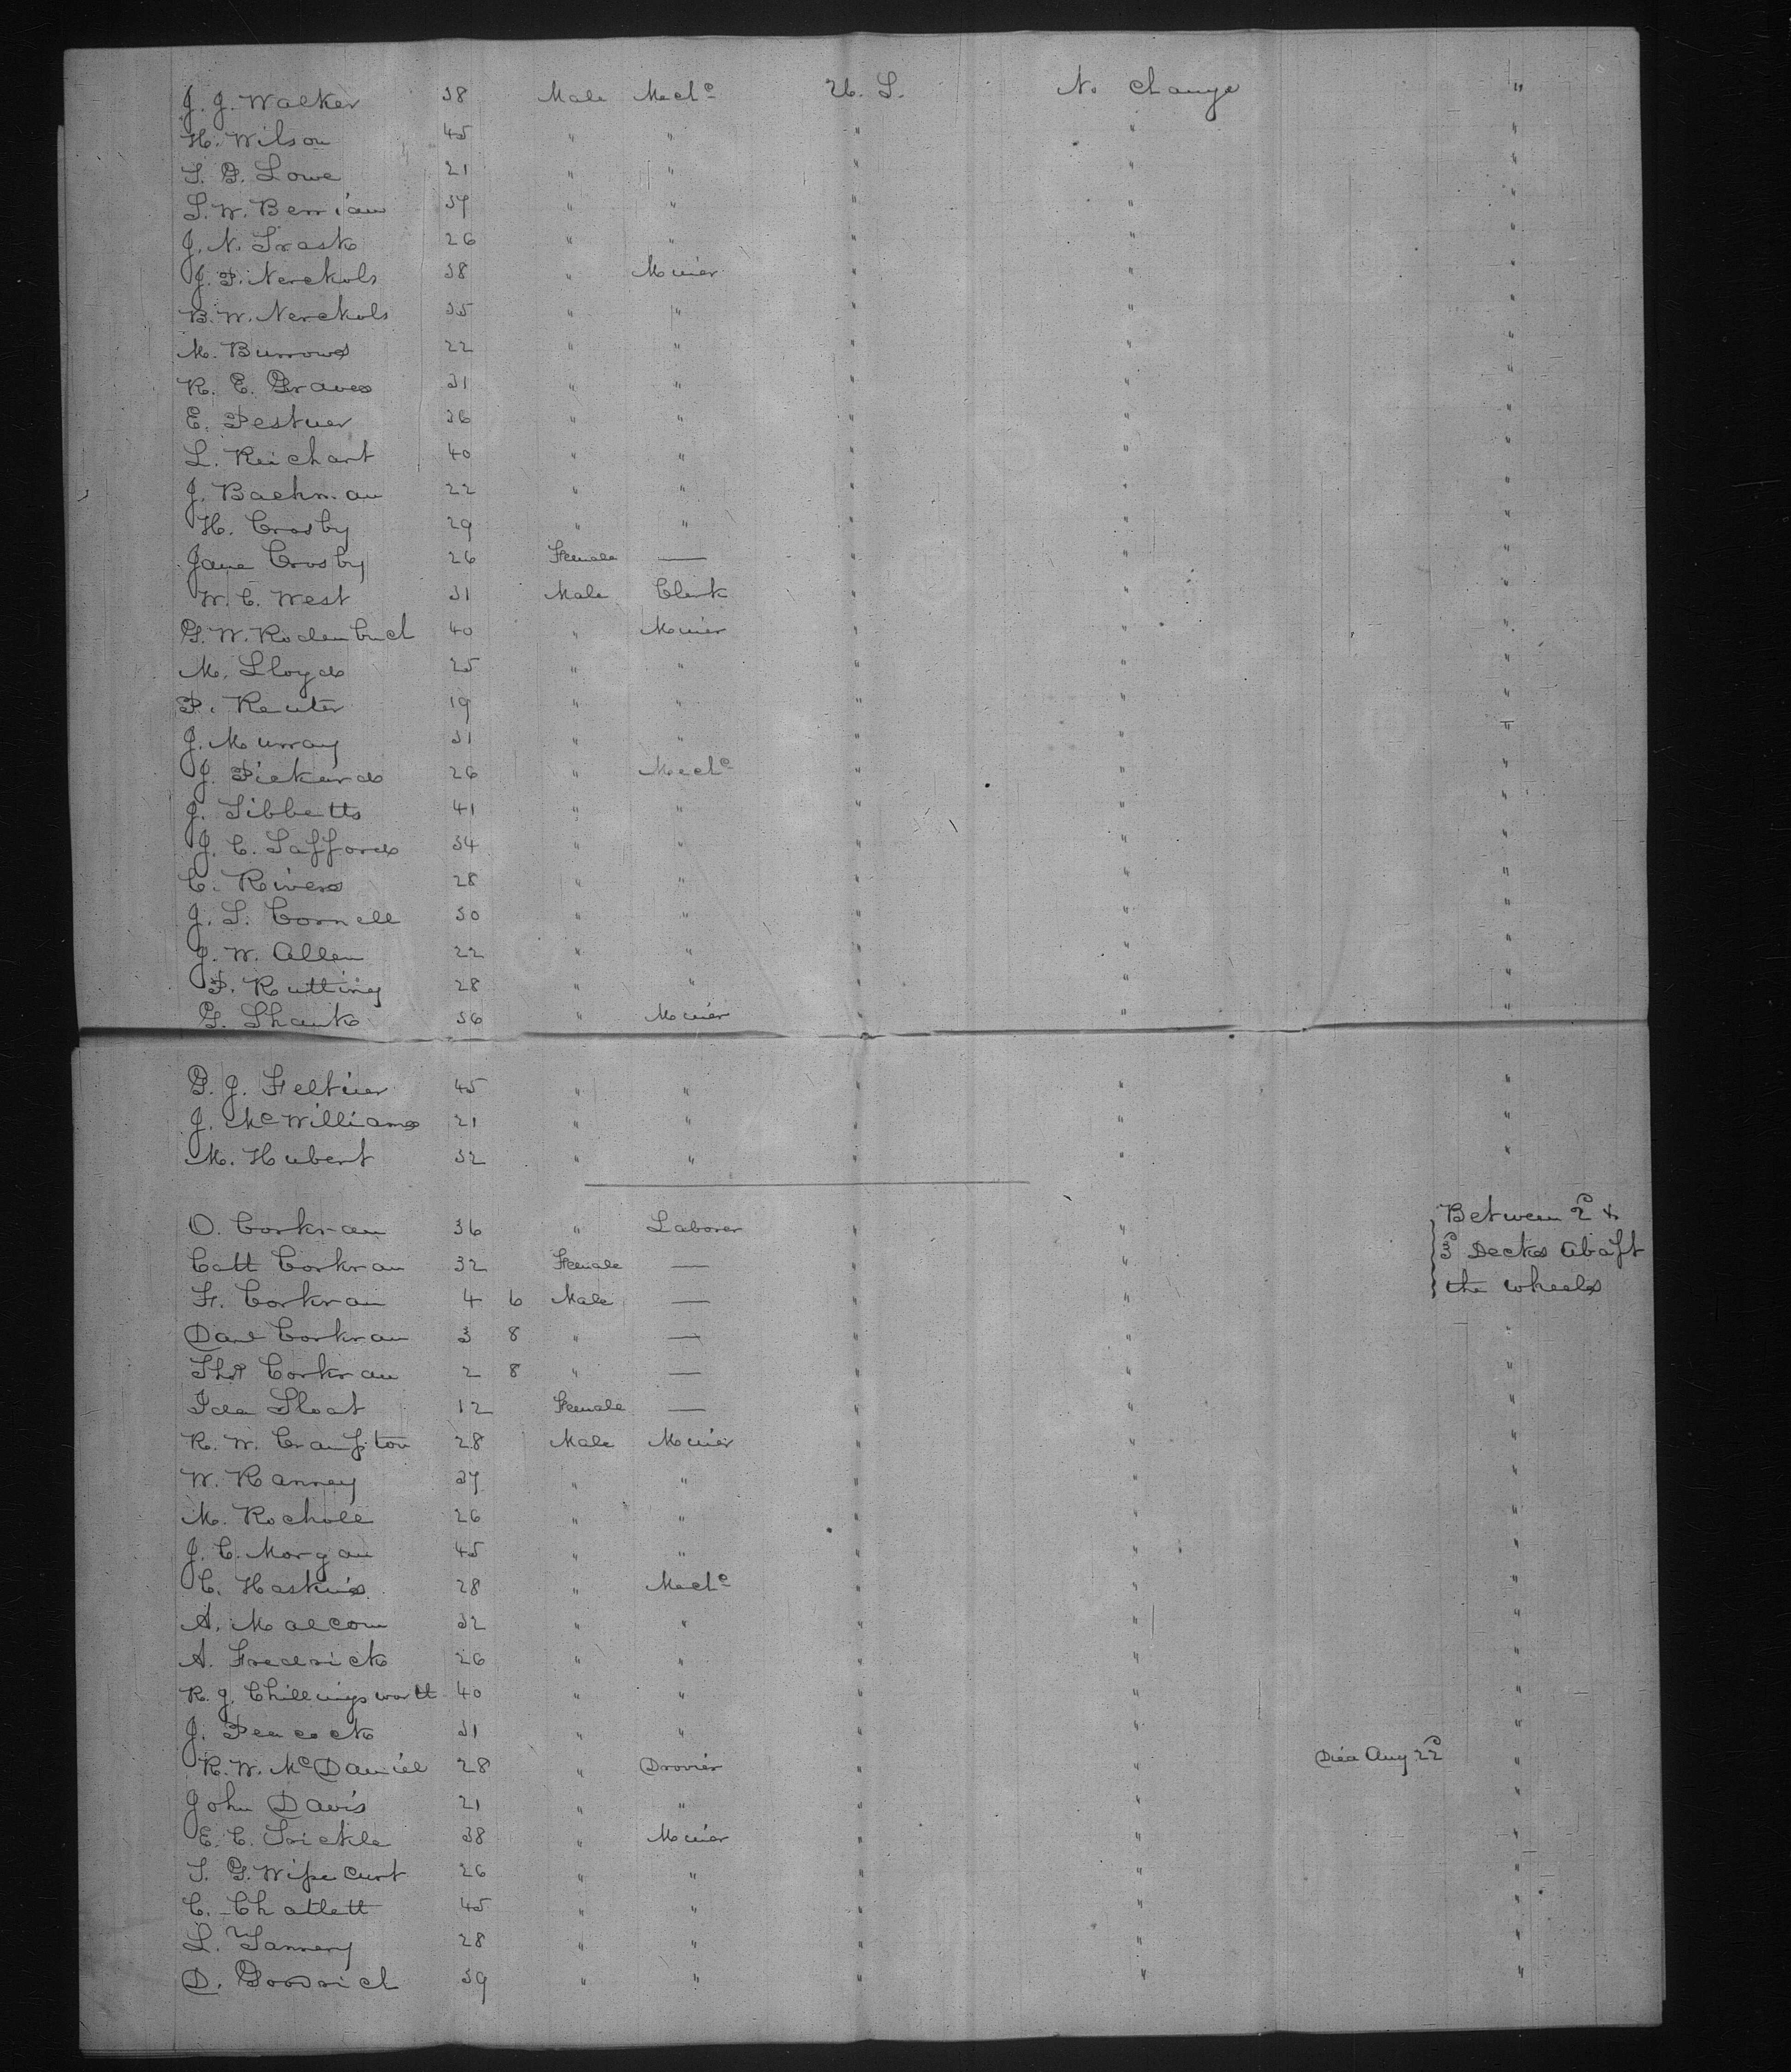 J. J. Walker 38 Male Mech^c U. S. No change "
H. Wilson 45 " " " " "
S. G. Lowe 21 " " " " "
S. W. Berrian 37 " " " " "
J. N. Trask 26 " " " " "
J. P. Nerckols 38 " Miner " " "
B. W. Nerckols 35 " " " " "
M. Burrows 22 " " " " "
R. E. Graves 31 " " " " "
E. Pestner 36 " " " " "
L. Reichart 40 " " " " "
J. Bachman 22 " " " " "
H. Crosby 29 " " " " "
Jane Crosby 26 Female — " " "
W. C. West 31 Male Clerk " " "
G. W. Rodenbuch 40 " Miner " " "
M. Lloyd 25 " " " " "
P. Reuter 19 " " " " "
J. Murray 31 " " " " "
J. Pickard 26 " Mech^c " " "
J. Tibbetts 41 " " " " "
J. C. Safford 34 " " " " "
C. Rivers 28 " " " " "
J. S. Cornell 30 " " " " "
J. W. Allen 22 " " " " "
P. Rutting 28 " " " " "
G. Shank 36 " Miner " " "
G. J. Feltner 45 " " " " "
J. McWilliams 21 " " " " "
M. Hubert 32 " " " " "
O. Corkran 36 " Laborer " " Between 2^d &
Cath Corkran 32 Female — " " 3^d Decks Abaft
F. Corkran 4 6 Male — " " the wheels
Danl Corkran 3 8 " — " " "
Thos Corkran 2 8 " — " " "
Ida Sloat 12 Female — " " "
R. W. Crampton 28 Male Miner " " "
W. Ranney 37 " " " " "
M. Rochole 26 " " " " "
J. C. Morgan 45 " " " " "
C. Haskins 28 " Mech^c " " "
A. Malcom 32 " " " " "
A. Fredrick 26 " " " " "
R. J. Chillingsworth 40 " " " " "
J. Peacock 31 " " " " "
R. W. McDaniel 28 " Drovier " " Died Aug 22^d "
John Davis 21 " " " " "
E. C. Trickle 38 " Miner " " "
S. G. Wipecurt 26 " " " " "
C. Chatlett 45 " " " " "
L. Tannery 28 " " " " "
D. Goodrich 39 " " " " "